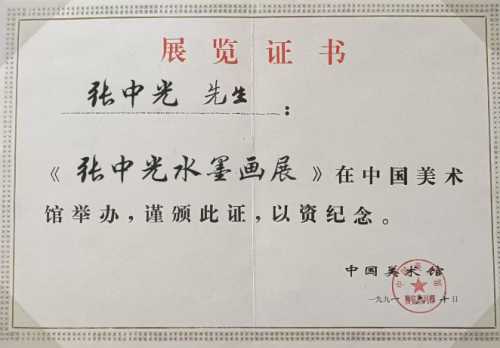 展览证书
张中光 先生：
《张中光水墨画展》在中国美术
馆举办，谨颁此证，以资纪念。
中国美术馆
一九九一 十日